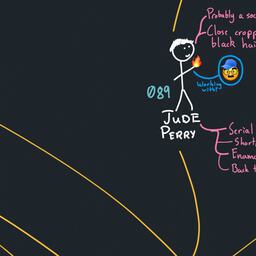 Probably a soc
Close cropp
black hai
Working
with?
089
JUDE
PERRY
Serial
Short
Enamo
Back t